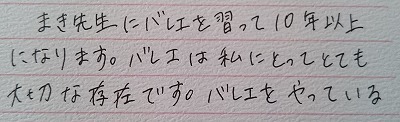 まき先生にバレエを習って10年以上
になります。バレエは私にとってとても
大切な存在です。バレエをやっている